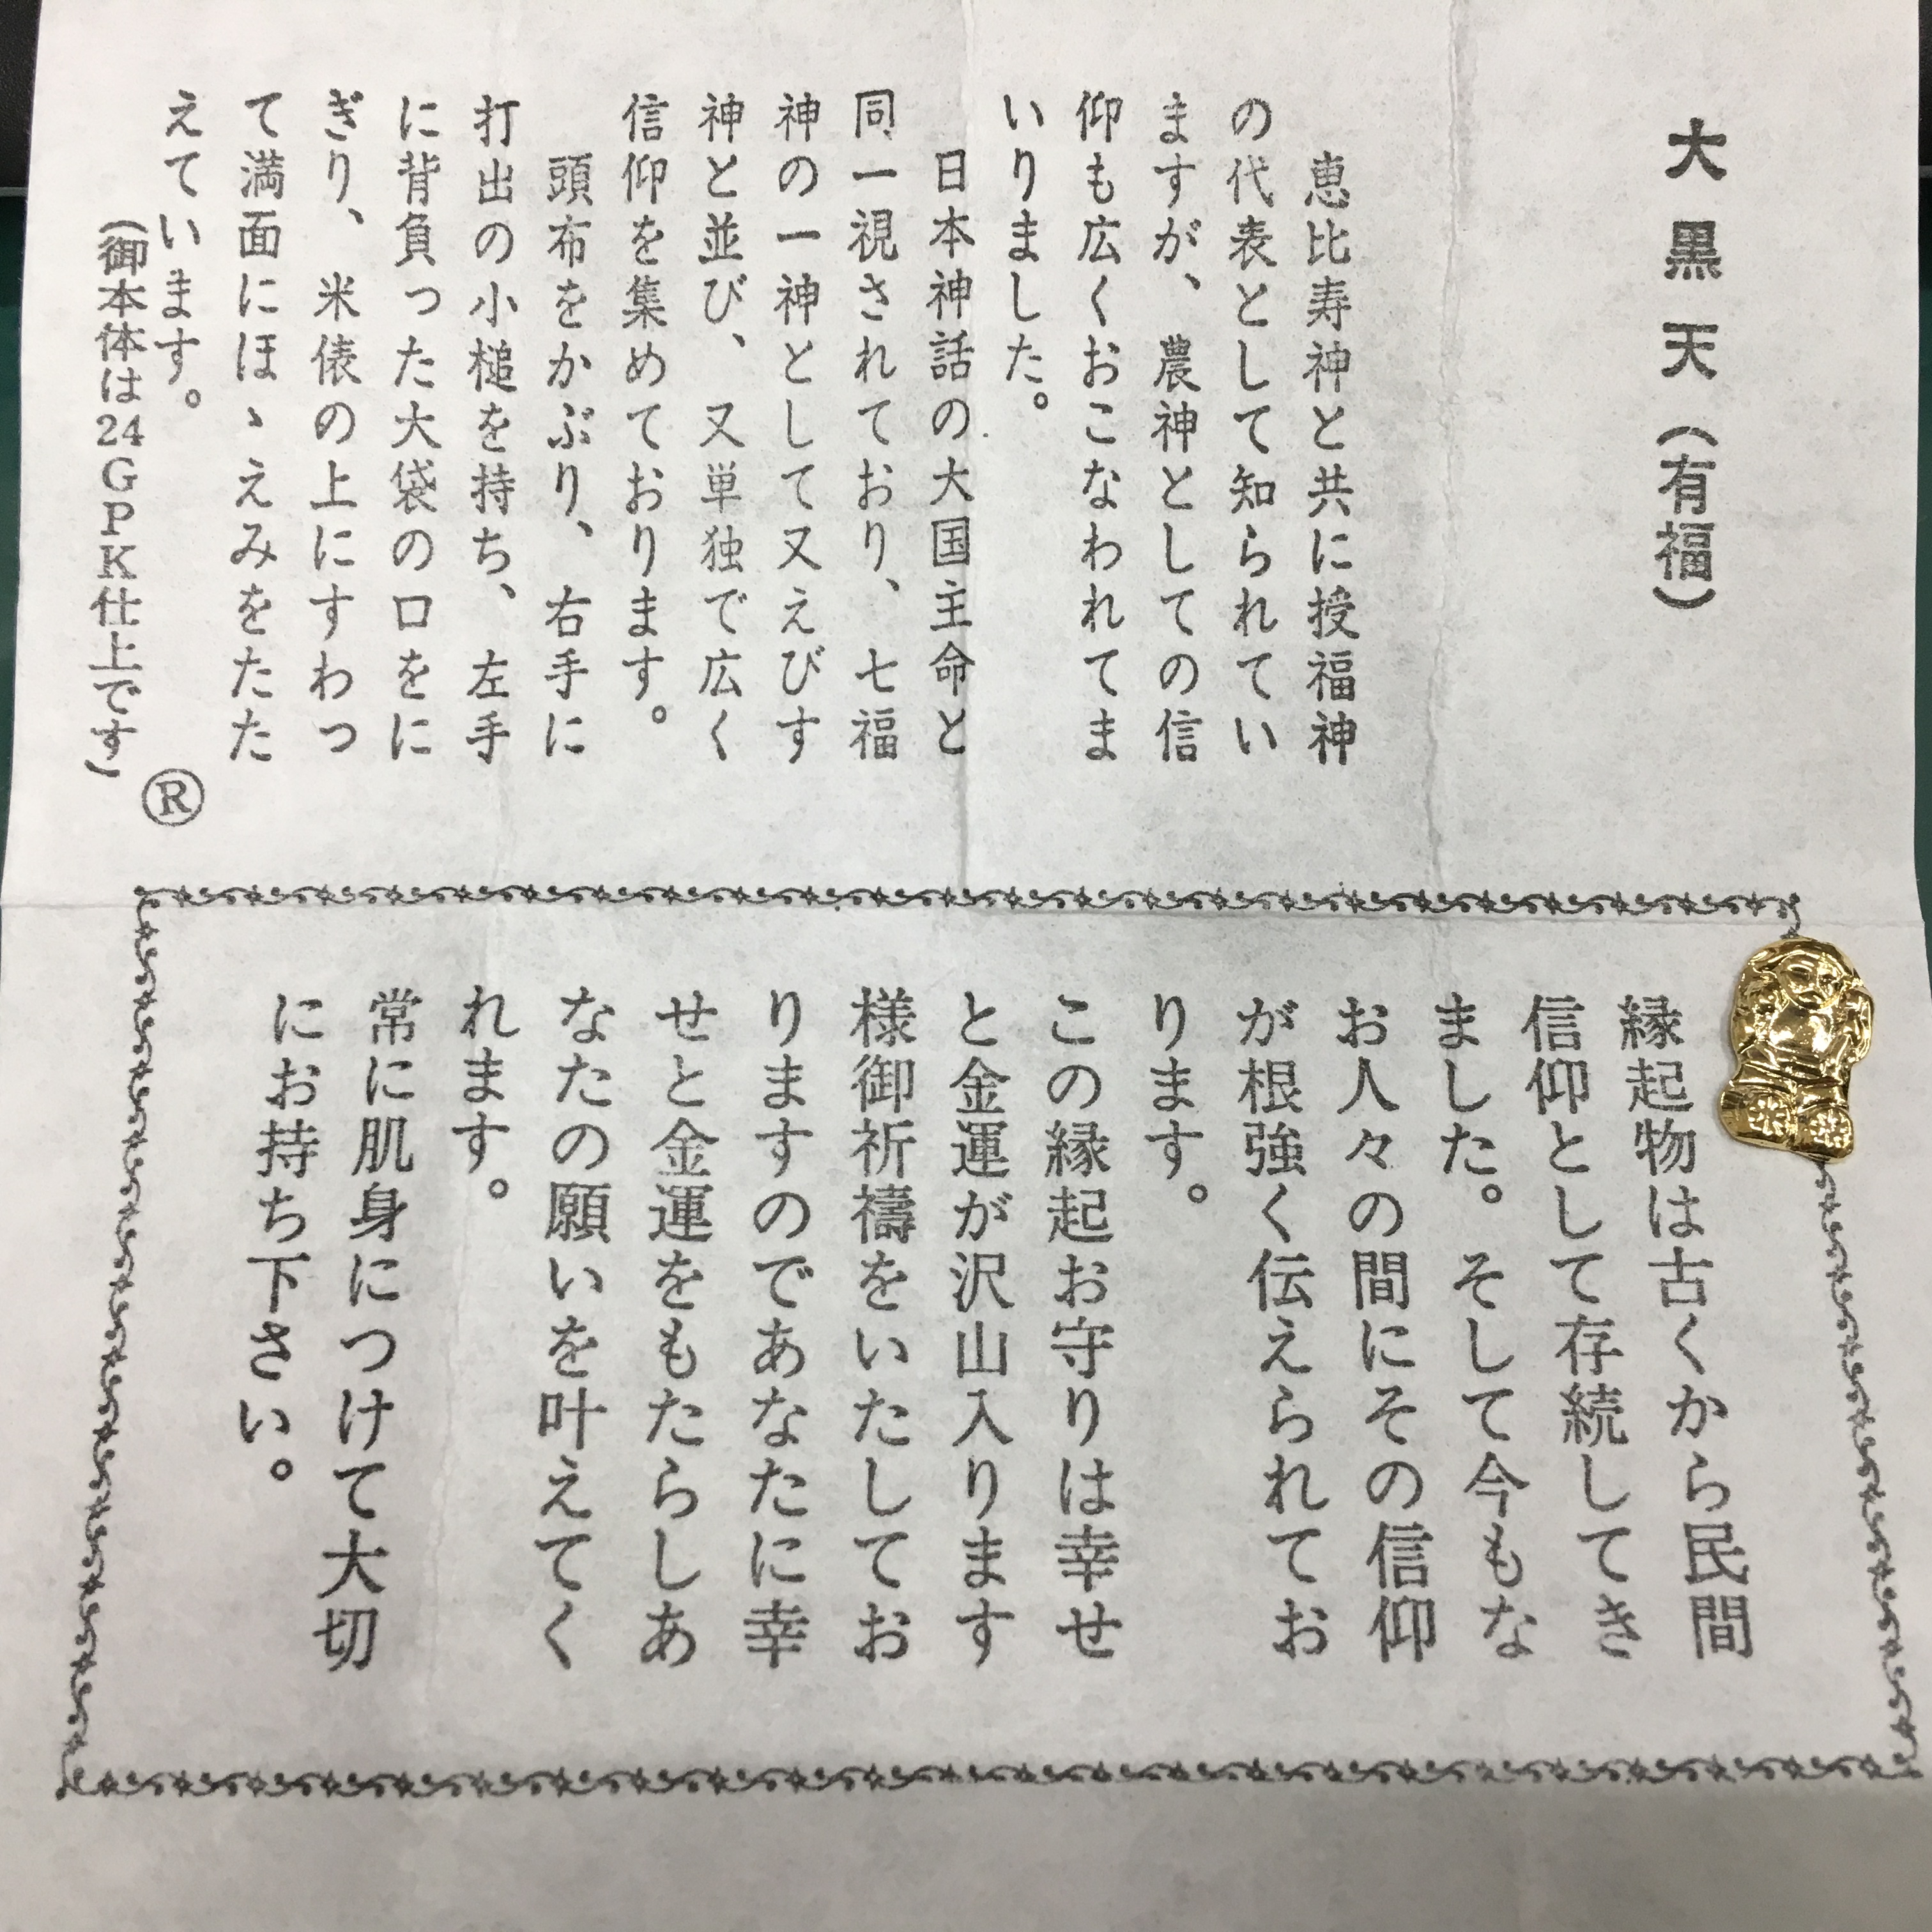 大黒天（有福）
恵比寿神と共に授福神
の代表として知られてい
ますが、農神としての信
仰も広くおこなわれてま
いりました。
日本神話の大国主命と
同一視されており、七福
神の一神として又えびす
神と並び、又単独で広く
信仰を集めております。
頭布をかぶり、右手に
打出の小槌を持ち、左手
に背負った大袋の口をに
ぎり、米俵の上にすわっ
て満面にほゝえみをたた
えています。
（御本体は24GPK仕上です）
®
縁起物は古くから民間
信仰として存続してき
ました。そして今もな
お人々の間にその信仰
が根強く伝えられてお
ります。
この縁起お守りは幸せ
と金運が沢山入ります
様御祈禱をいたしてお
りますのであなたに幸
せと金運をもたらしあ
なたの願いを叶えてく
れます。
常に肌身につけて大切
にお持ち下さい。